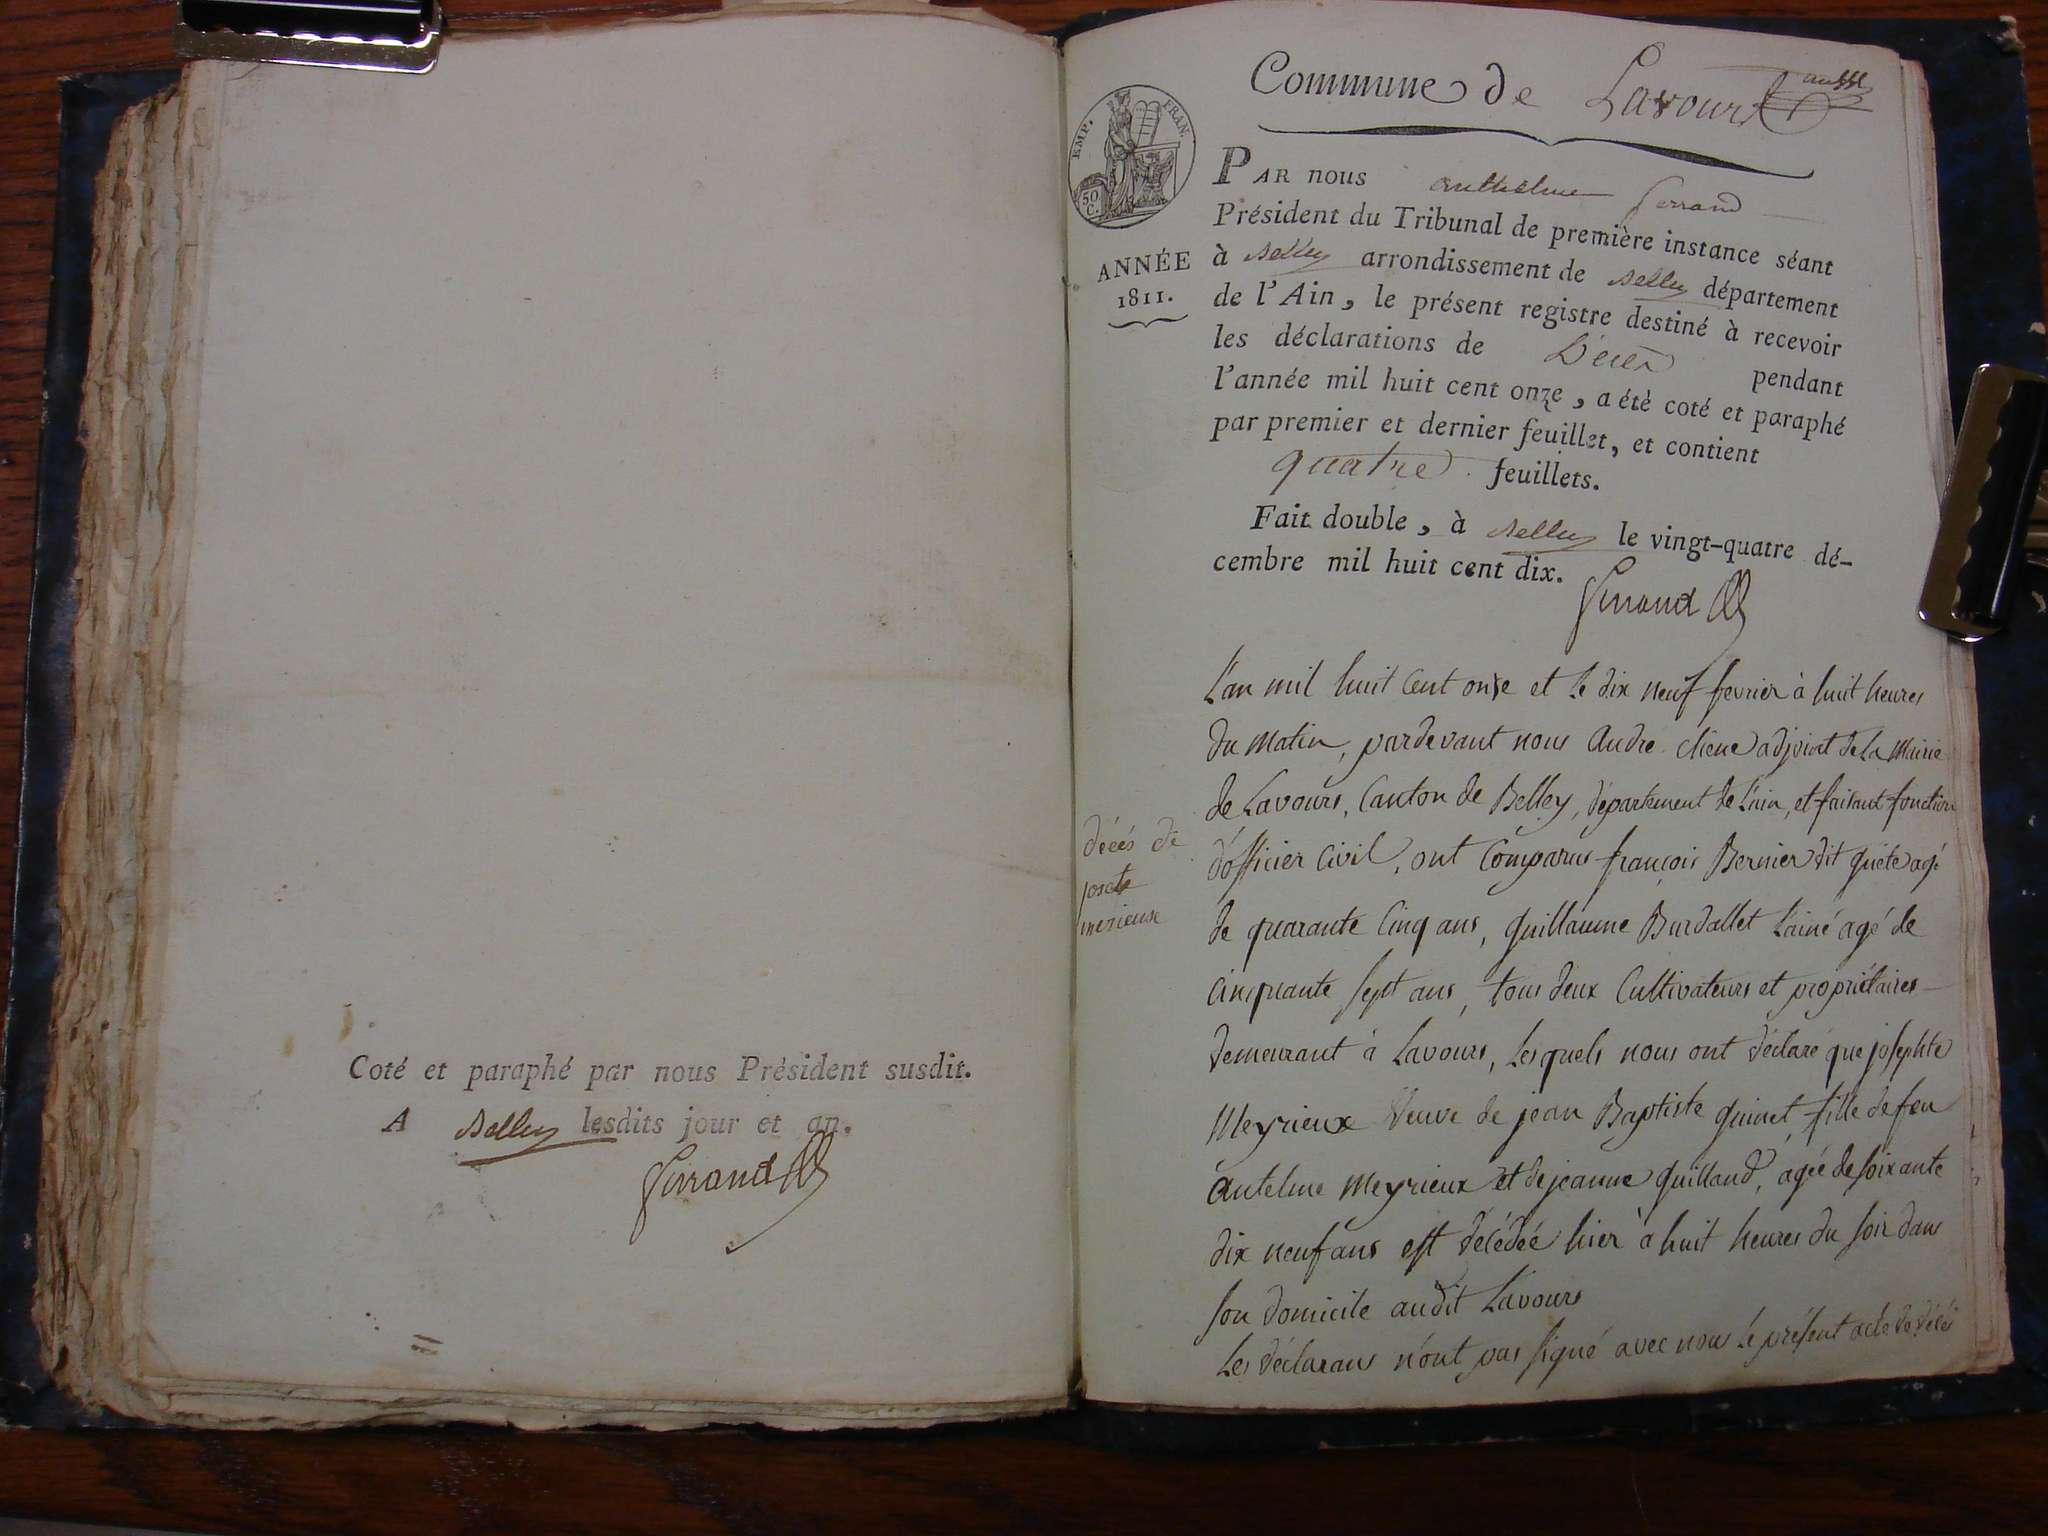 Coté et paraphé par nous Président susdit.
A Belley lesdits jour et an.
Commune de Lavours
EMP. FRAN.
50
C.
ANNÉE
1811.
PAR nous anthelme
Président du Tribunal de première instance séant
à Belley arrondissement de Belley département
de l'Ain, le présent registre destiné à recevoir
les déclarations de Décès pendant
l'année mil huit cent onze, a été coté et paraphé
par premier et dernier feuillet, et contient
quatre feuillets.
Fait double, à Belley le vingt-quatre dé-
cembre mil huit cent dix.
décés de
josete
merieux
L'an mil huit Cent onse et le dix neuf fevrier à huit heures
du Matin, pardevant nous André chêne adjoint de La Mairie
de Lavours, Canton de Belley, département de L'ain, et faisant fonction
d'officier Civil, ont Comparus françois Bernier dit quete agé
de quarante Cinq ans, guillaume Burdallet L'ainé agé de
Cinquante sept ans, tous deux Cultivateurs et propriétaires
demeurant à Lavours, Lesquels nous ont déclaré que josephte
Meyrieux Veuve de jean Baptiste quinet fille de feu
antelme Meyrieux et de jeanne guilland, agée de soixante
dix neuf ans est décédée hier à huit heures du soir dans
son domicile audit Lavours
Les déclarans n'ont pas signé avec nous Le présent acte de décés